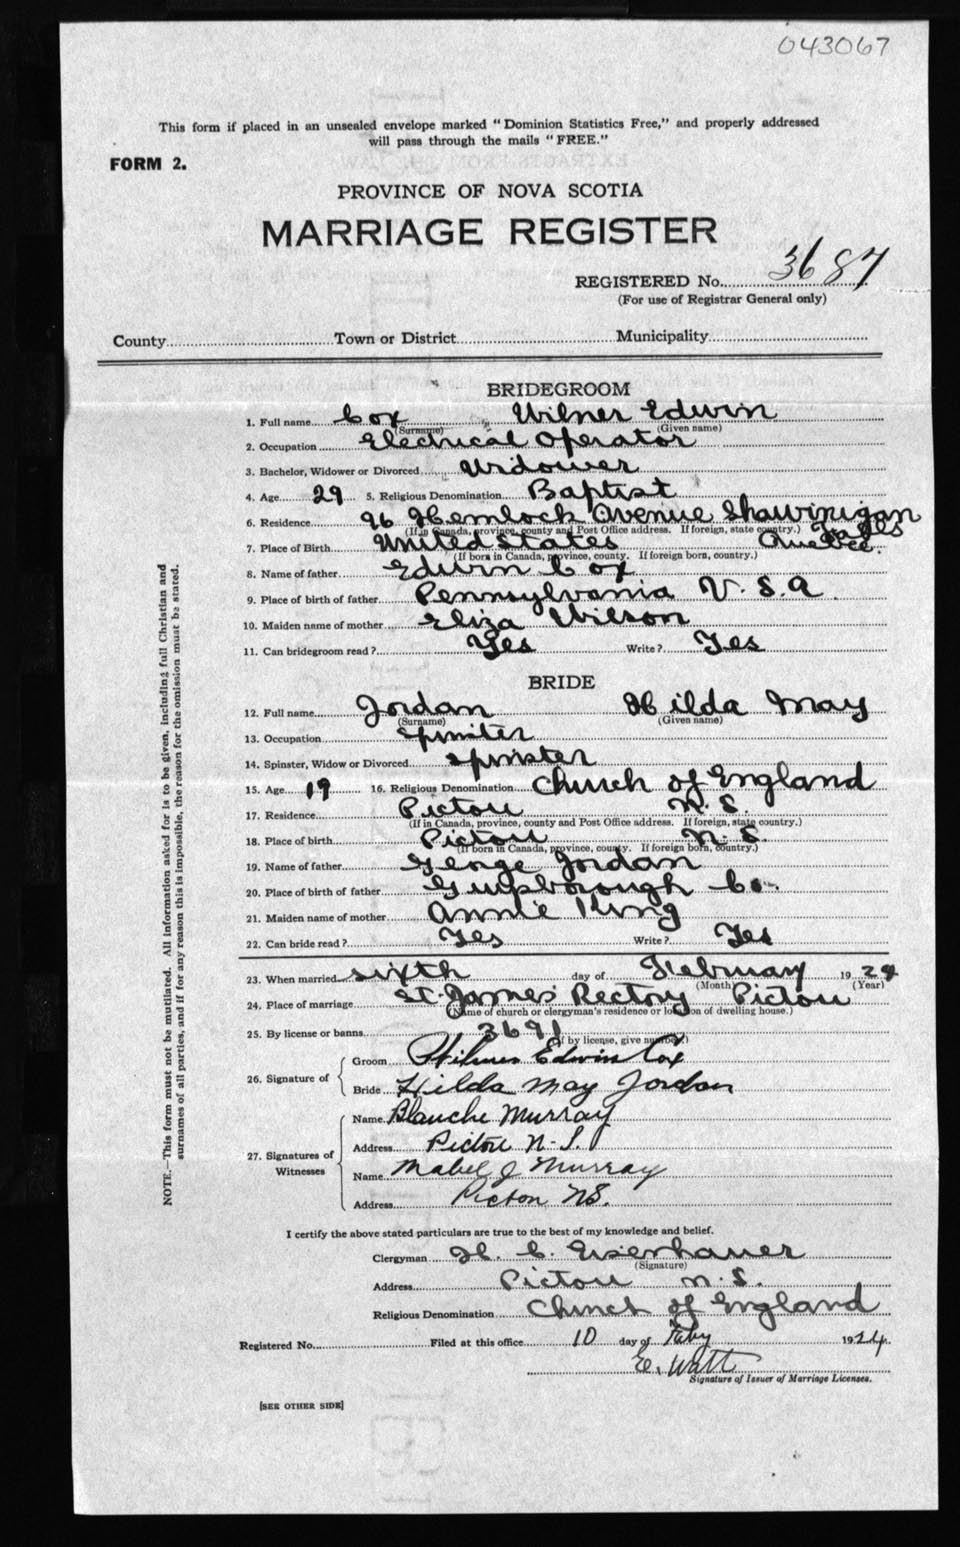 043067
This form if placed in an unsealed envelope marked "Dominion Statistics Free," and properly addressed
will pass through the mails "FREE."
FORM 2.
PROVINCE OF NOVA SCOTIA
MARRIAGE REGISTER
REGISTERED No. 3687
(For use of Registrar General only)
County Town or District Municipality
BRIDEGROOM
1. Full name Cox Wilner Edwin
(Surname) (Given name)
2. Occupation Electrical Operator
3. Bachelor, Widower or Divorced Widower
4. Age 29 5. Religious Denomination Baptist
6. Residence 96 Hemlock Avenue Shawinigan Falls
(If in Canada, province, county and Post Office address. If foreign, state country.) Quebec.
7. Place of Birth United States
(If born in Canada, province, county. If foreign born, country.)
8. Name of father Edwin Cox
9. Place of birth of father Pennsylvania U.S.A
10. Maiden name of mother Eliza Wilson
11. Can bridegroom read? Yes Write? Yes
BRIDE
12. Full name Jordan Hilda May
(Surname) (Given name)
13. Occupation Spinster
14. Spinster, Widow or Divorced Spinster
15. Age 19 16. Religious Denomination Church of England
17. Residence Pictou N.S.
(If in Canada, province, county and Post Office address. If foreign, state country.)
18. Place of birth Pictou N.S.
(If born in Canada, province, county. If foreign born, country.)
19. Name of father George Jordan
20. Place of birth of father Guysborough Co.
21. Maiden name of mother Annie King
22. Can bride read? Yes Write? Yes
23. When married sixth day of February 1924
(Month) (Year)
24. Place of marriage St. James' Rectory Pictou
(Name of church or clergyman's residence or location of dwelling house.)
25. By license or banns 3691
(If by license, give number.)
26. Signature of Groom Wilner Edwin Cox
Bride Hilda May Jordan
27. Signatures of Witnesses Name Blanche Murray
Address Pictou N.S.
Name Mabel J Murray
Address Pictou NS.
I certify the above stated particulars are true to the best of my knowledge and belief.
Clergyman H. C. Eisenhauer
(Signature)
Address Pictou N.S.
Religious Denomination Church of England
Registered No. Filed at this office 10 day of Feby 1924.
E. Watt
Signature of Issuer of Marriage Licenses.
[SEE OTHER SIDE]
NOTE.—This form must not be mutilated. All information asked for is to be given, including full Christian and
surnames of all parties, and if for any reason this is impossible, the reason for the omission must be stated.